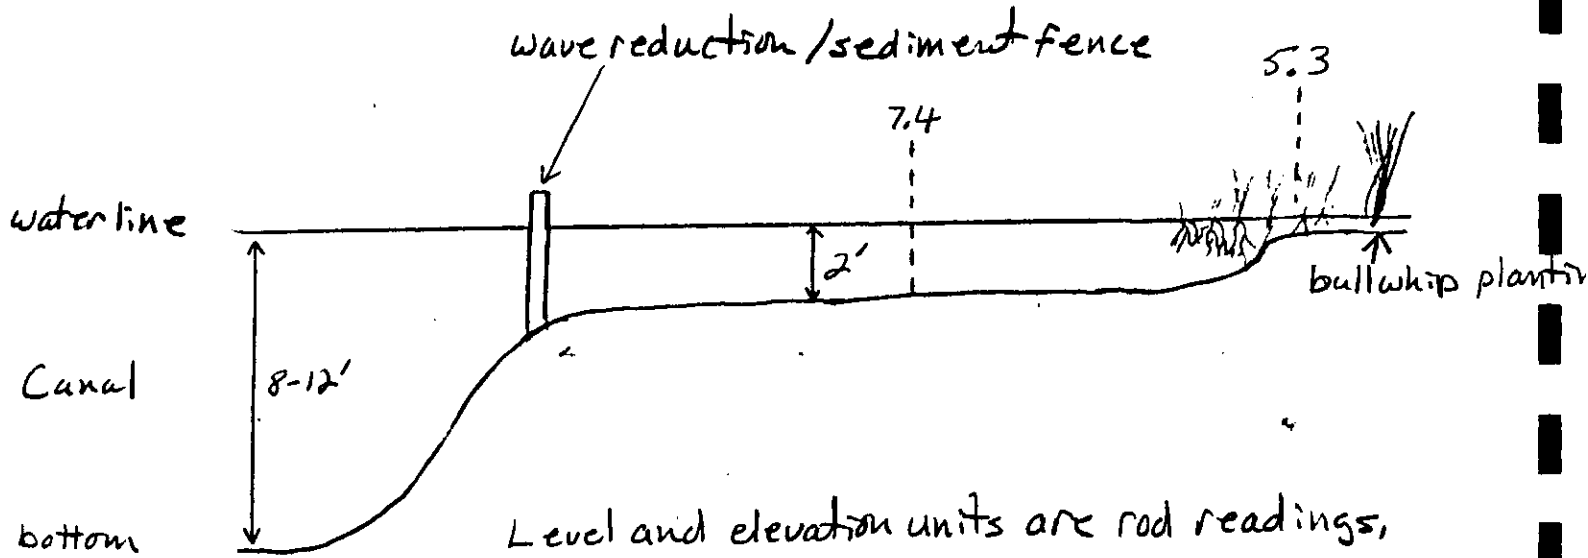 wave reduction/sediment fence
5.3
7.4
waterline
2'
bullwhip
Canal
8-12'
bottom
Level and elevation units are rod readings,